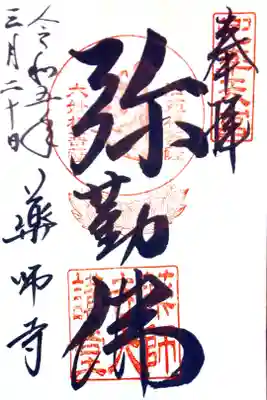 奉拝
弥勒佛
薬師寺
令和五年
三月二十日